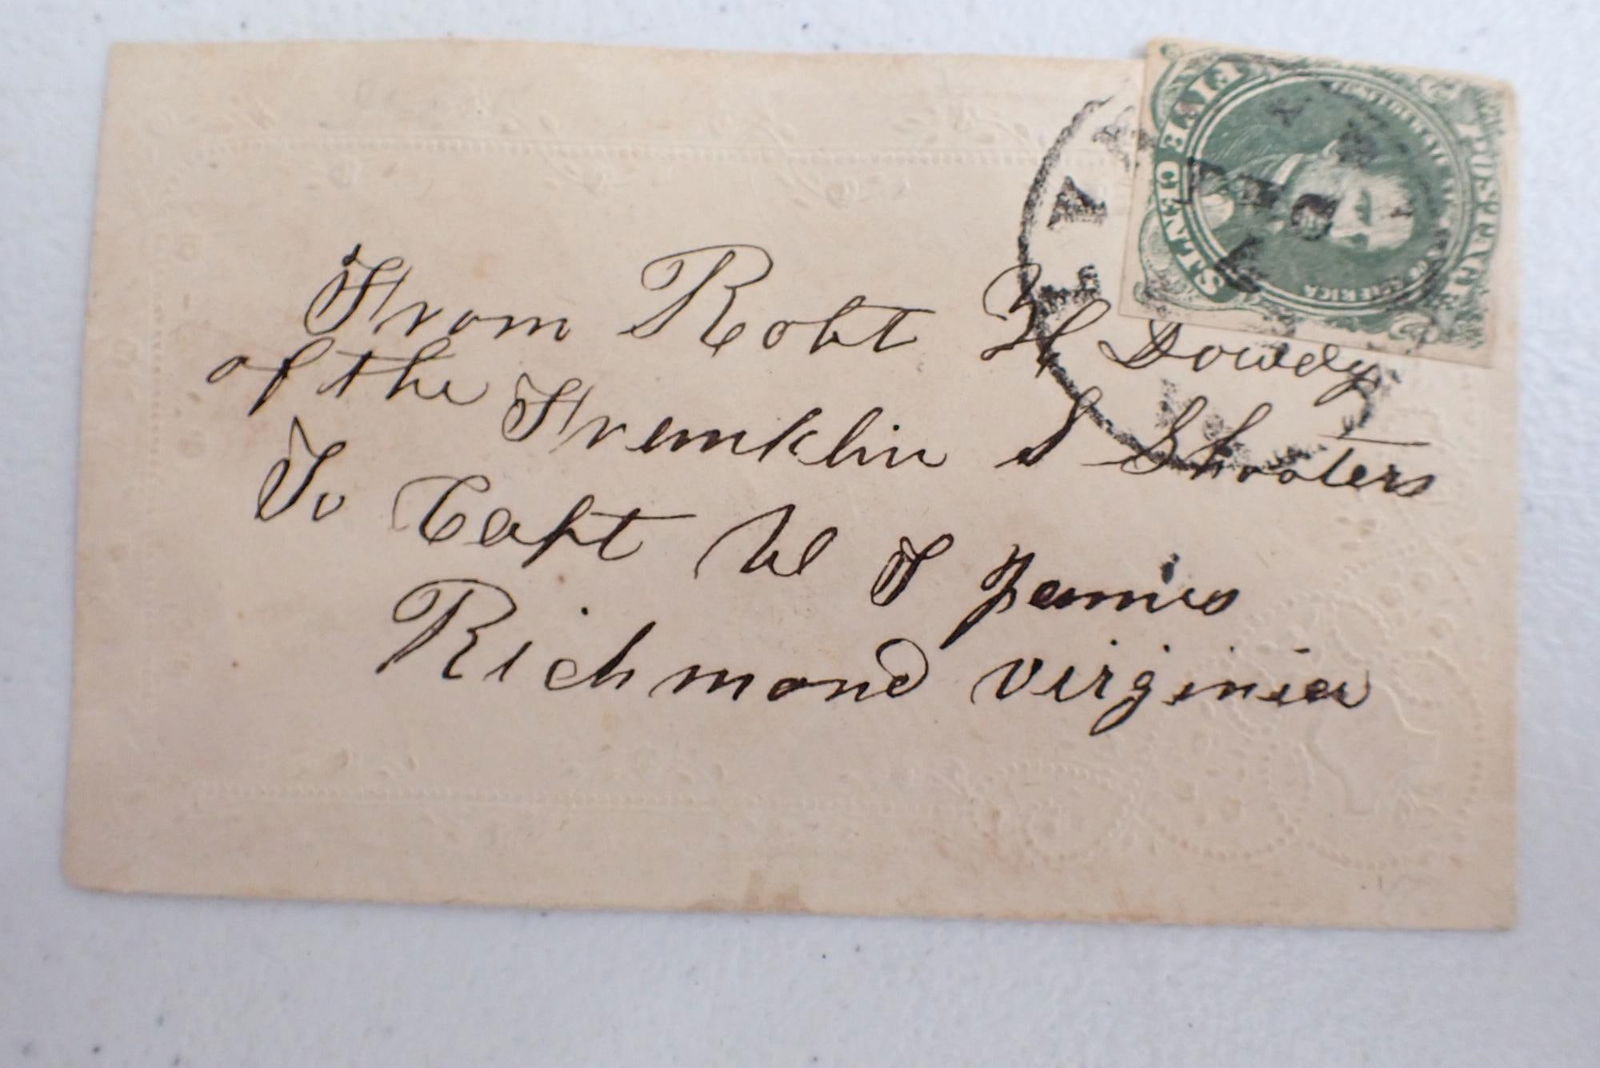 FIVE CENTS
POSTAGE
CONFEDERATE STATES OF AMERICA
From Robt H Dowdy
of the Franklin S Shooters
To Capt W T James
Richmond virginia